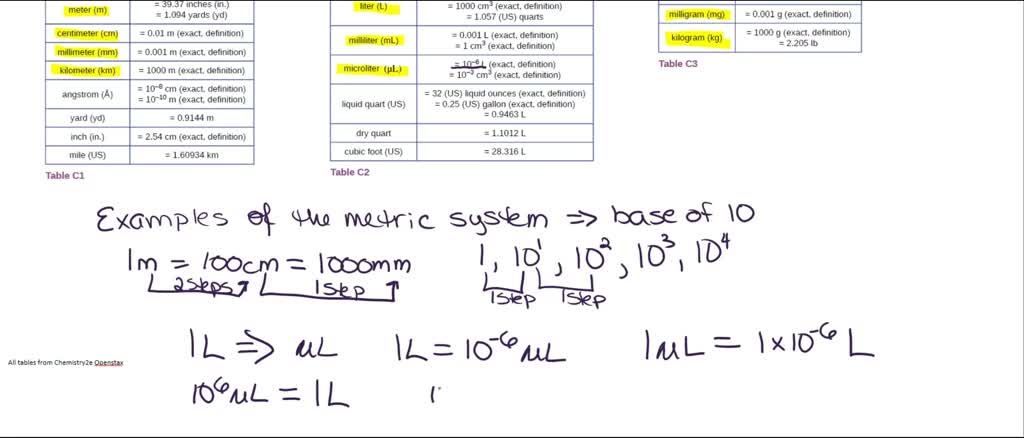 meter (m) = 39.37 inches (in.)
= 1.094 yards (yd)
centimeter (cm) = 0.01 m (exact, definition)
millimeter (mm) = 0.001 m (exact, definition)
kilometer (km) = 1000 m (exact, definition)
angstrom (Å) = 10⁻⁸ cm (exact, definition)
= 10⁻¹⁰ m (exact, definition)
yard (yd) = 0.9144 m
inch (in.) = 2.54 cm (exact, definition)
mile (US) = 1.60934 km
Table C1
liter (L) = 1000 cm³ (exact, definition)
= 1.057 (US) quarts
milliliter (mL) = 0.001 L (exact, definition)
= 1 cm³ (exact, definition)
microliter (µL) = 10⁻⁶ L (exact, definition)
= 10⁻³ cm³ (exact, definition)
liquid quart (US) = 32 (US) liquid ounces (exact, definition)
= 0.25 (US) gallon (exact, definition)
= 0.9463 L
dry quart = 1.1012 L
cubic foot (US) = 28.316 L
Table C2
milligram (mg) = 0.001 g (exact, definition)
kilogram (kg) = 1000 g (exact, definition)
= 2.205 lb
Table C3
Examples of the metric system ⇒ base of 10
1m = 100cm = 1000mm 1, 10¹, 10², 10³, 10⁴
2steps 1step 1step 1step
1L ⇒ µL 1L = 10⁻⁶ µL 1µL = 1×10⁻⁶ L
All tables from Chemistry2e Openstax
10⁶ µL = 1L